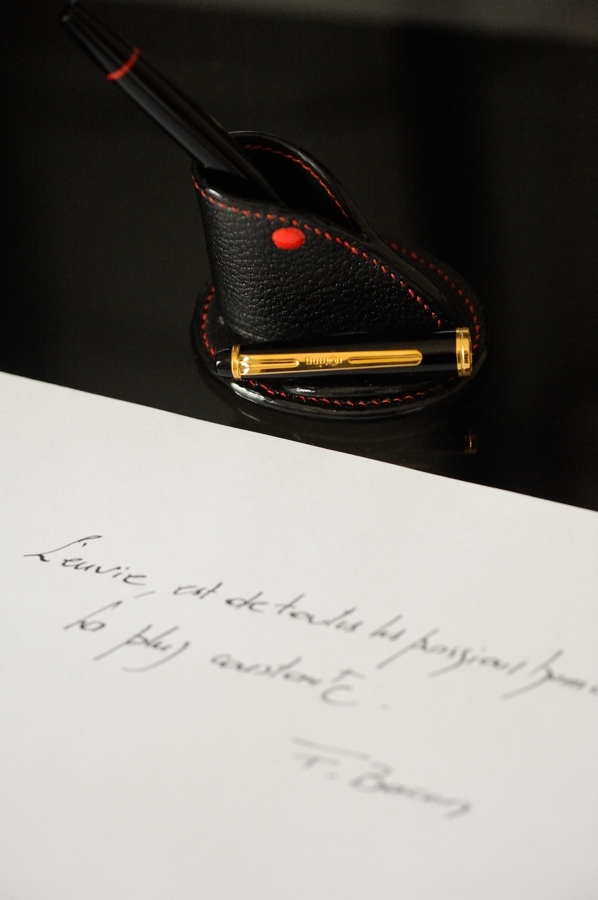 L'envie, est de toutes les passions hum
la plus constante.
F. Bacon